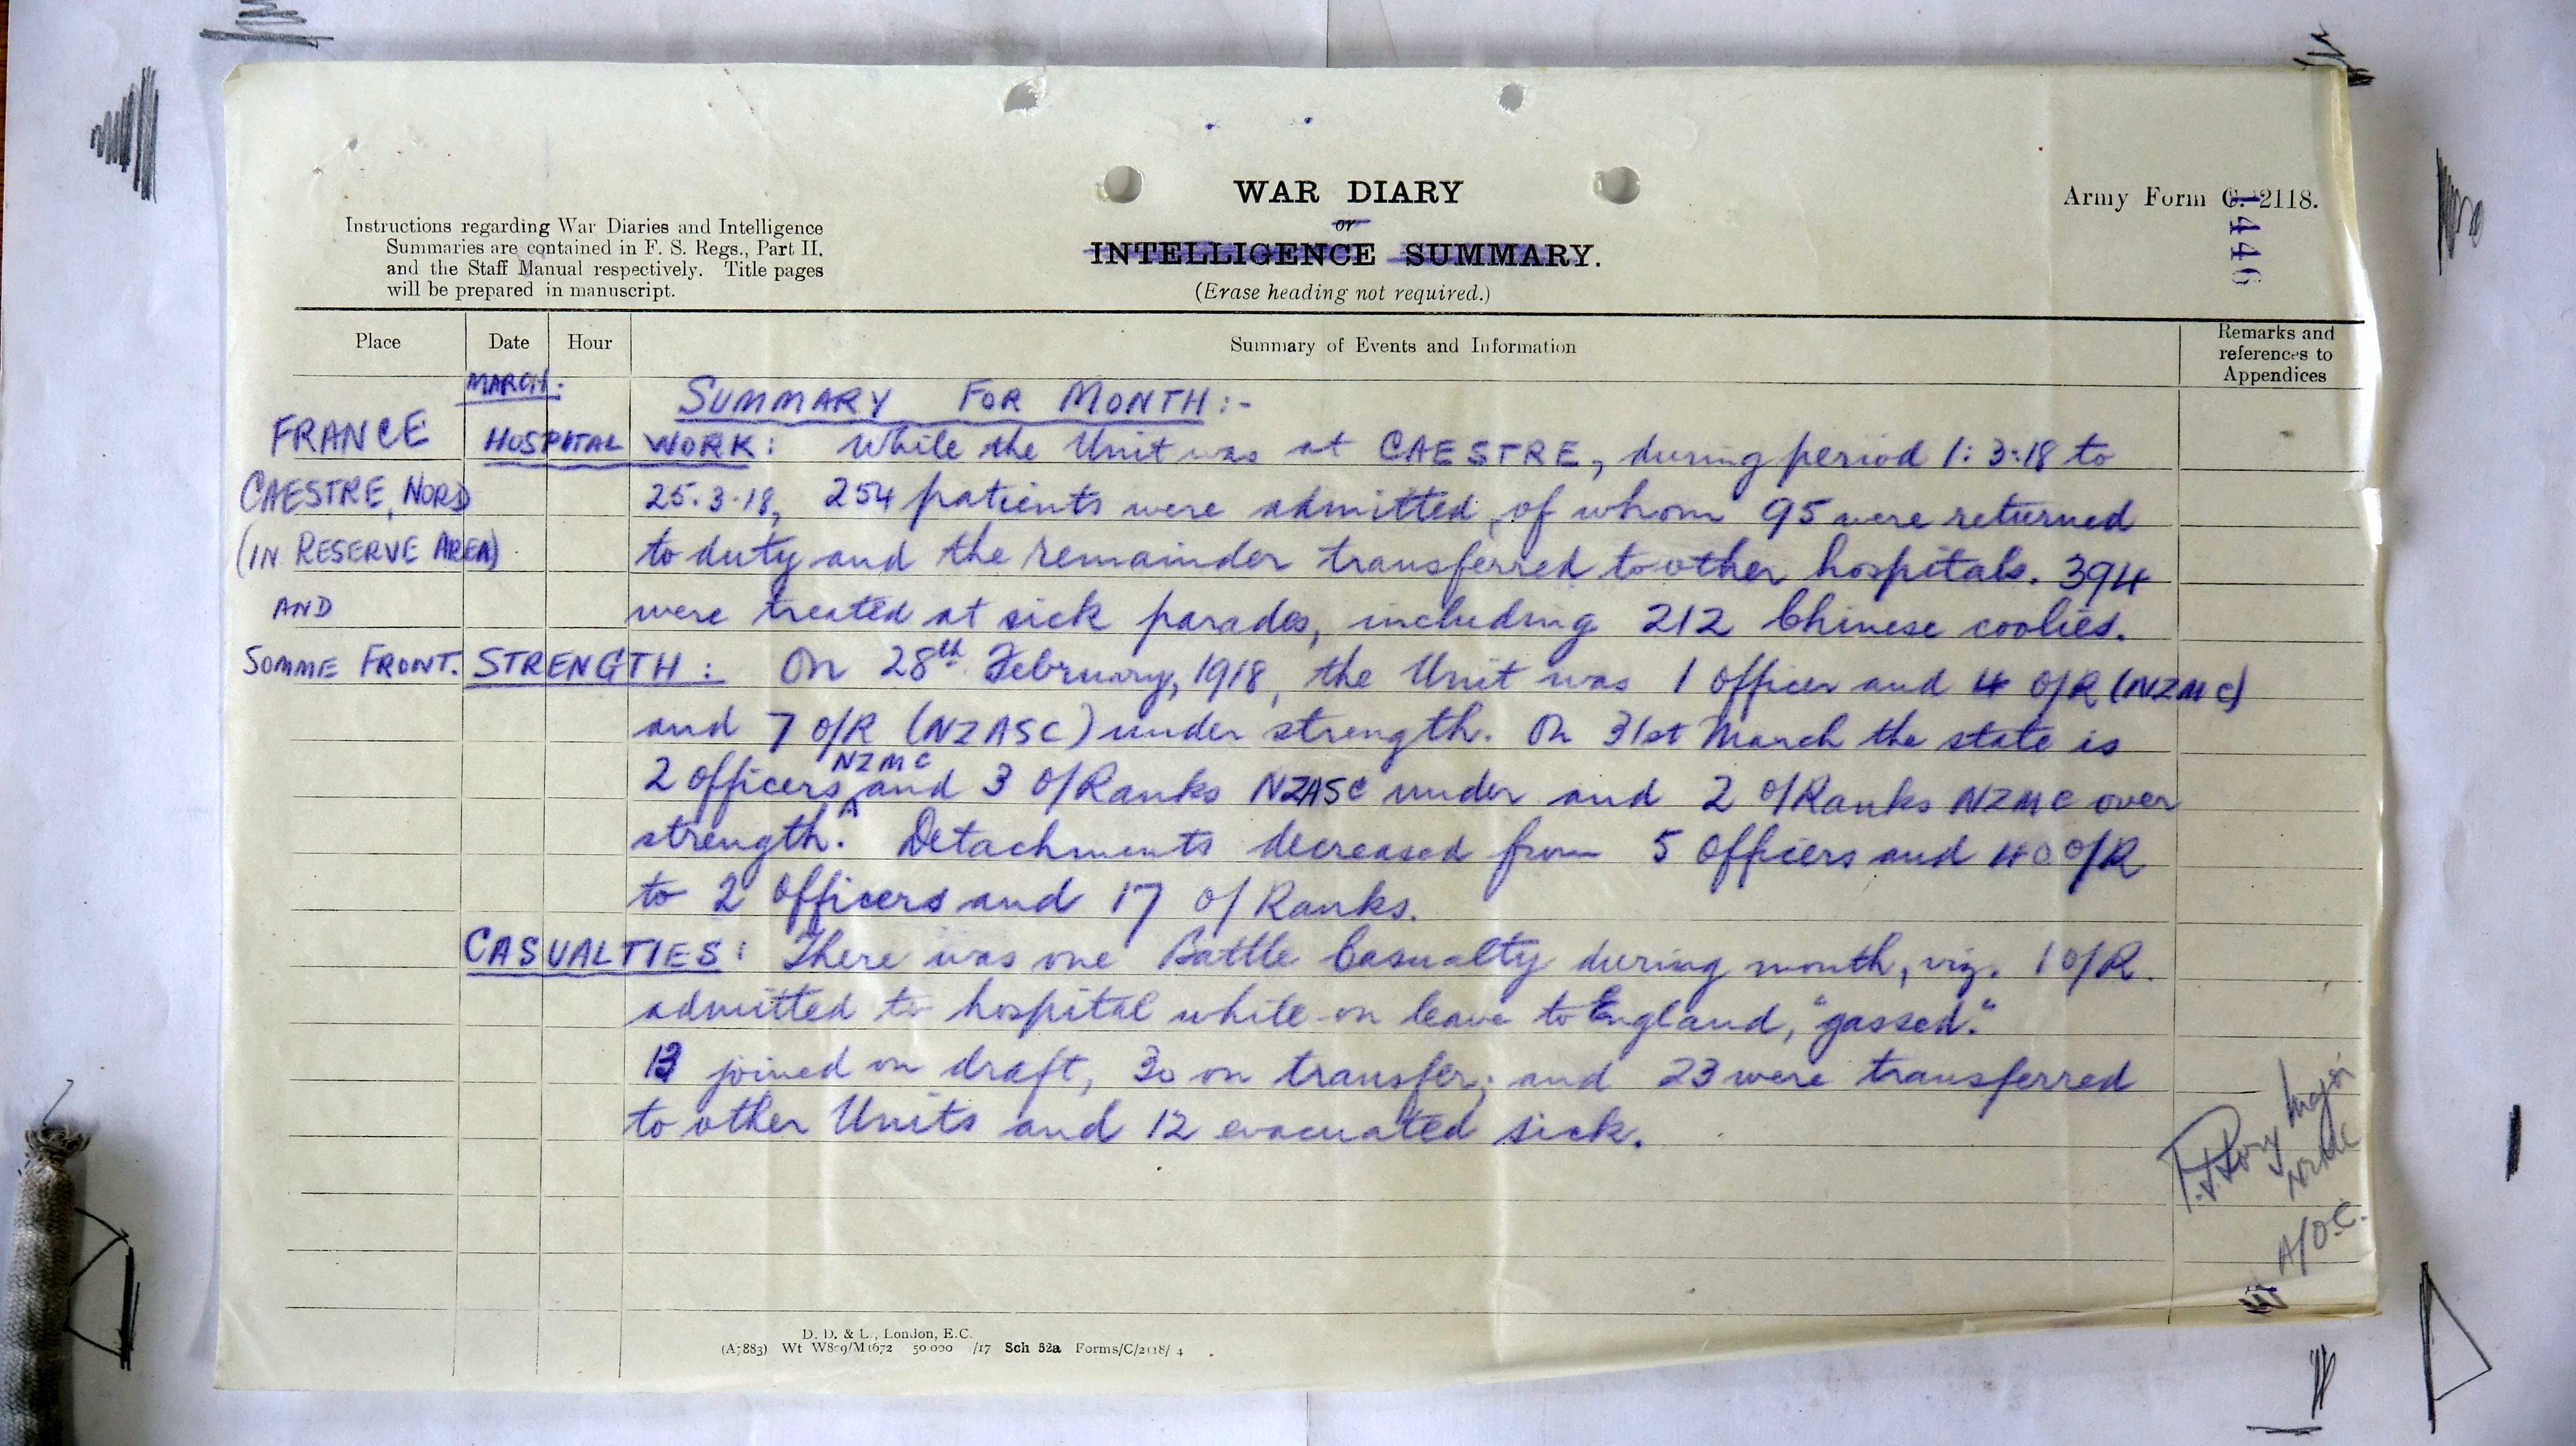 WAR DIARY
or
INTELLIGENCE SUMMARY.
(Erase heading not required.)
Army Form C. 2118.
1446
Instructions regarding War Diaries and Intelligence
Summaries are contained in F. S. Regs., Part II.
and the Staff Manual respectively. Title pages
will be prepared in manuscript.
Place Date Hour Summary of Events and Information Remarks and
references to
Appendices
MARCH. SUMMARY FOR MONTH:-
FRANCE HOSPITAL WORK: While the Unit was at CAESTRE, during period 1:3:18 to
CAESTRE, NORD 25.3.18, 254 patients were admitted, of whom 95 were returned
(IN RESERVE AREA) to duty and the remainder transferred to other hospitals. 394
AND were treated at sick parades, including 212 Chinese coolies.
SOMME FRONT. STRENGTH: On 28th February, 1918, the Unit was 1 Officer and 4 O/R (NZMC)
and 7 O/R (NZASC) under strength. On 31st March the state is
NZMC
2 Officers and 3 O/Ranks NZASC under and 2 O/Ranks NZMC over
strength. Detachments decreased from 5 Officers and 40 O/R
to 2 Officers and 17 O/Ranks.
CASUALTIES: There was one Battle Casualty during month, viz. 1 O/R.
admitted to hospital while on leave to England, "gassed."
13 joined on draft, 30 on transfer; and 23 were transferred
to other Units and 12 evacuated sick.
Major
NZMC
A/O.C.
D. D. & L., London, E.C.
(A7883) Wt W809/M1672 50,000 /17 Sch 52a Forms/C/2118/ 4